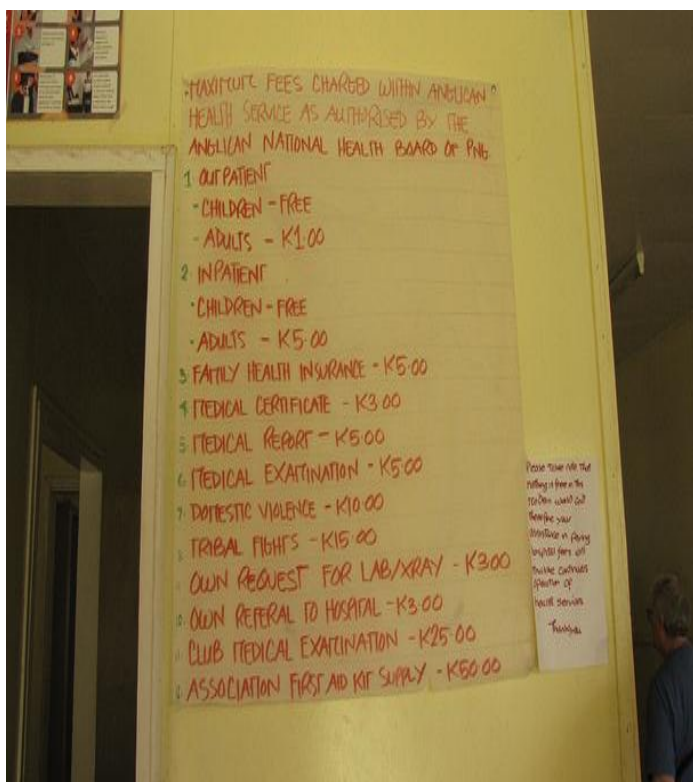 MAXIMUM FEES CHARGED WITHIN ANGLICAN
HEALTH SERVICE AS AUTHORISED BY THE
ANGLICAN NATIONAL HEALTH BOARD OF PNG
1 OUTPATIENT
- CHILDREN - FREE
- ADULTS - K1.00
2. INPATIENT
• CHILDREN - FREE
• ADULTS - K5.00
3 FAMILY HEALTH INSURANCE - K5.00
4 MEDICAL CERTIFICATE - K3.00
5 MEDICAL REPORT - K5.00
6 MEDICAL EXAMINATION - K5.00
7. DOMESTIC VIOLENCE - K10.00
8 TRIBAL FIGHTS - K15.00
OWN REQUEST FOR LAB/XRAY - K3.00
10. OWN REFERAL TO HOSPITAL - K3.00
CLUB MEDICAL EXAMINATION - K25.00
ASSOCIATION FIRST AID KIT SUPPLY - K50.00
Please take note that
nothing is free in the
modern world and
therefore your
assistance in paying
hospital fees will
continues
operation of
health services